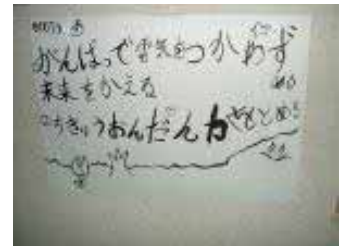 がんばって電気をつかわず
未来をかえる
ちきゅうおんだんカをとめる